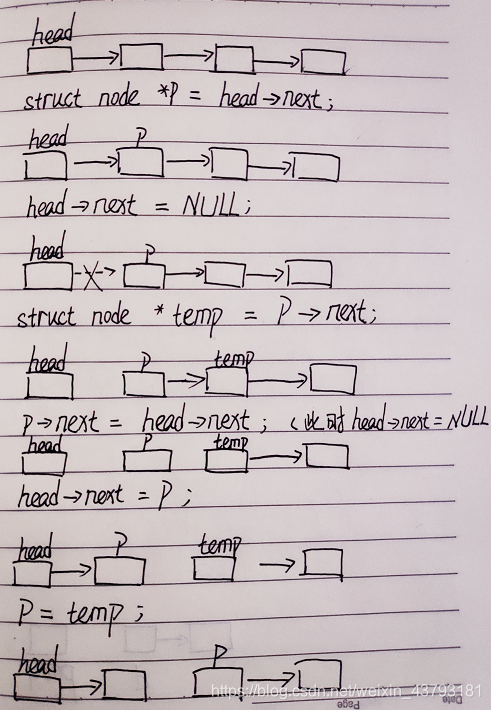 head
struct node *P = head→next;
head P
head→next = NULL;
head P
struct node * temp = P→next;
head P temp
P→next = head→next; (此时 head→next = NULL
head P temp
head→next = P;
head P temp
P = temp;
head P
https://blog.csdn.net/weixin_43793181
Page Date